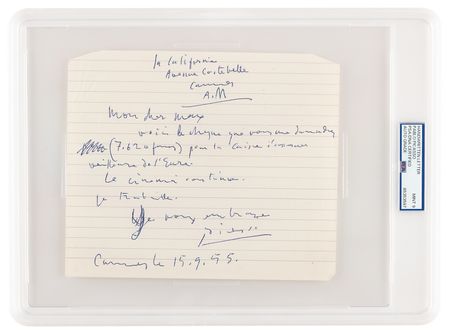 La Californie
Avenue Costebelle
Cannes
A.M
Mon cher Max
voici le cheque que vous me demandez
(7.620 francs) pour la caisse d'assurance
vieillesse de l'Eure.
Le cinema continue.
je travaille.
je vous embrasse
Picasso
Cannes le 15.9.55.
MANUSCRIPT LETTER
PABLO PICASSO
PSA/DNA CERTIFIED
AUTO GRADE
MINT 9